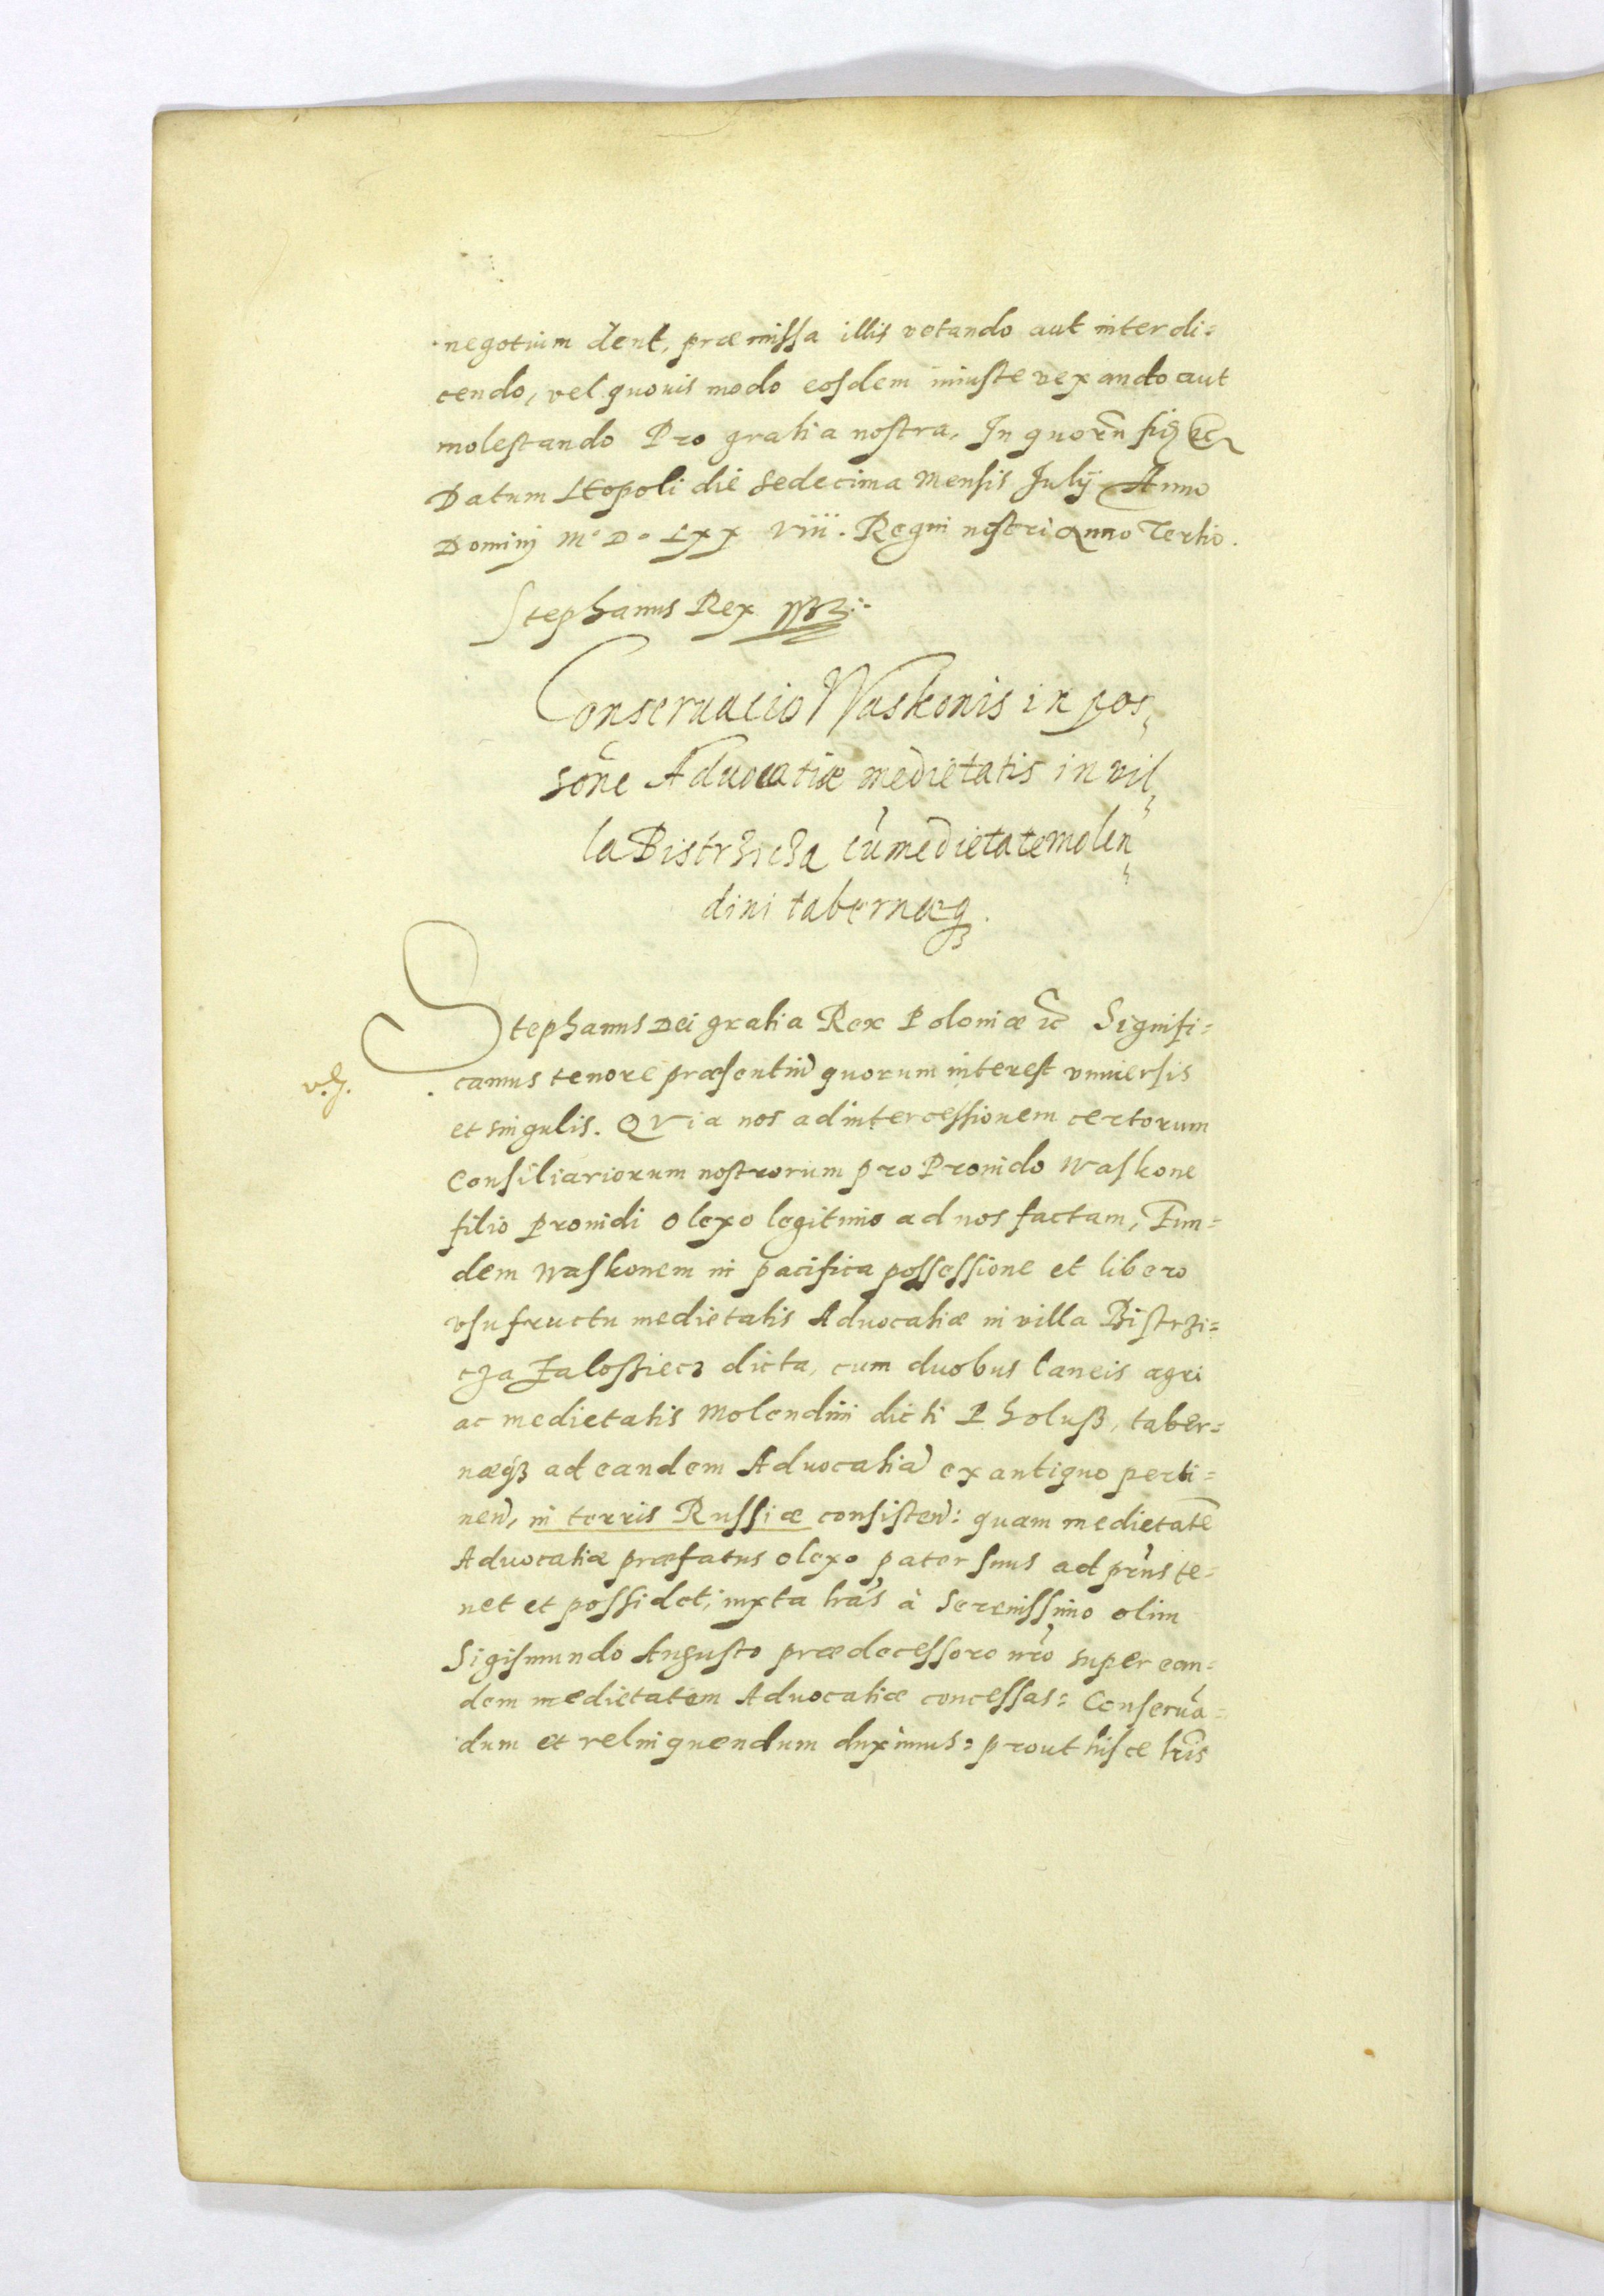 negotium dent, præmissa illis vetando aut interdi=
cendo, vel quouis modo eosdem iniuste vexando aut
molestando Pro gratia nostra. In quorũ fid̃ &c
Datum Leopoli die sedecima mensis Julij Anno
Dominj M° D° LXX VIII. Regni nostri Anno Tertio.
Stephanus Rex
Conseruacio Waskonis in pos,
soñe Aduocatiæ medietatis in vil,
la Bistrzicza cũ medietate molen,
dini tabernæq₃.
Stephanus Dei gratia Rex Poloniæ &c Signifi=
v.
camus tenore præsentiũ quorum interest vniuersis
et singulis. QVia nos ad intercessionem certorum
Consiliariorum nostrorum pro Prouido Waskone
filio prouidi Olexo legitimo ad nos factam, Eun=
dem Waskonem in pacifica possessione et libero
vsufructu medietatis Aduocatiæ in villa Bistrzi=
cza Zalossiecz dicta, cum duobus laneis agri
ac medietatis Molendini dicti Pholusz, taber=
næq₃ ad eandem Aduocatiã ex antiquo perti=
neñ, in terris Russiæ consisteñ: quam medietatẽ
Aduocatiæ præfatus Olexo pater suus ad prñs te=
net et possidet, iuxta lrãs à Serenissimo olim
Sigismundo Augusto prædecessore nr̃o super ean=
dem medietatem Aduocatiæ concessas: Conseruã=
dum et relinquendum duximus: prout hisce lr̃is